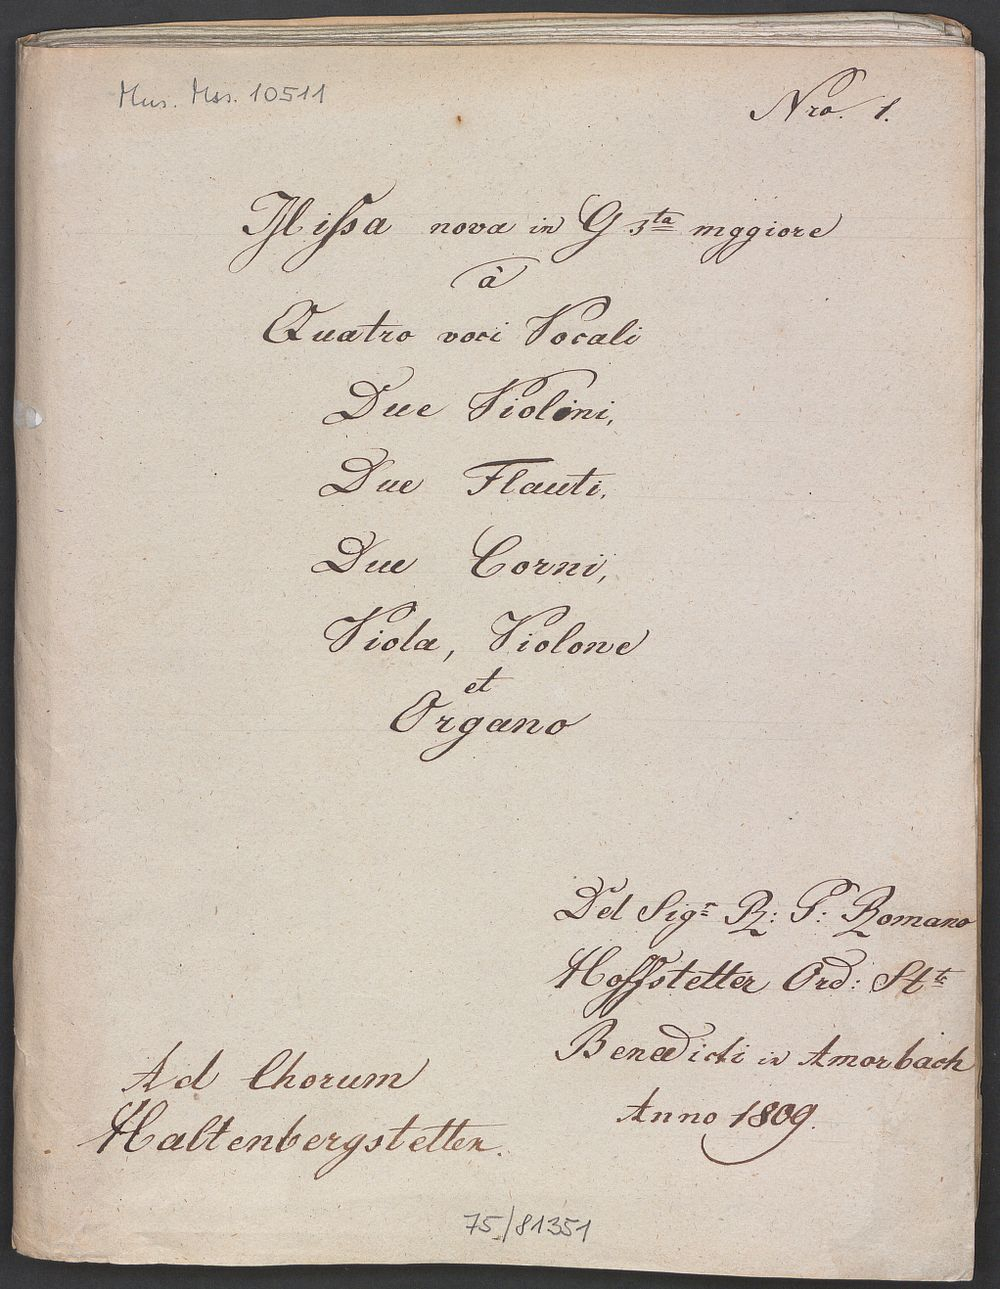 Mus. Mss. 10511
Nro. 1.
Missa nova in G 3ta mggiore
â
Quatro voci Vocali
Due Violini,
Due Flauti,
Due Corni,
Viola, Violone
et
Organo
Del Sigr R: P: Romano
Hoffstetter Ord: Stti
Benedicti in Amorbach
Anno 1809.
Ad Chorum
Haltenbergstetten.
75/81351